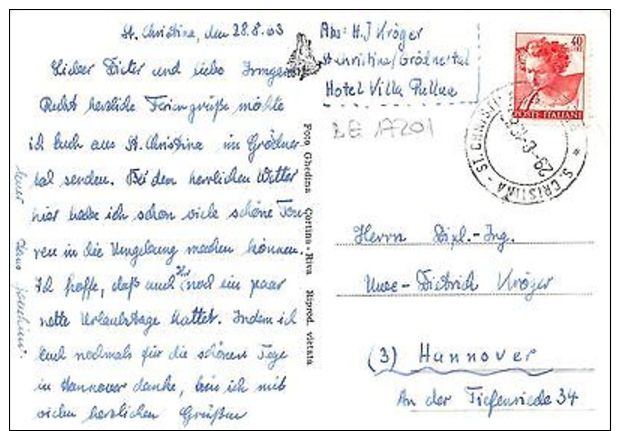 St. Christina, den 28.8.63
Lieber Dieter und liebe Irmgard
Recht herzliche Feriengrüße möchte
ich Euch aus St. Christina im Grödner
tal senden. Bei dem herrlichen Wetter
hier habe ich schon viele schöne Tou-
ren in die Umgebung machen können.
Ich hoffe, daß auch Ihr noch ein paar
nette Urlaubstage hattet. Indem ich
Euch nochmals für die schönen Tage
in Hannover danke, bin ich mit
vielen herzlichen Grüßen
Euer Hans Joachim.
Foto Ghedina Cortina - Riva Riprod. vietata
Abs: H.J Kröger
St Christina/Grödnertal
Hotel Villa Pallua
BE 17201
40
POSTE ITALIANE
S. CRISTINA - ST. CHRISTINA
Herrn Dipl.-Ing.
Uwe-Dietrich Kröger
(3) Hannover
An der Tiefenriede 34